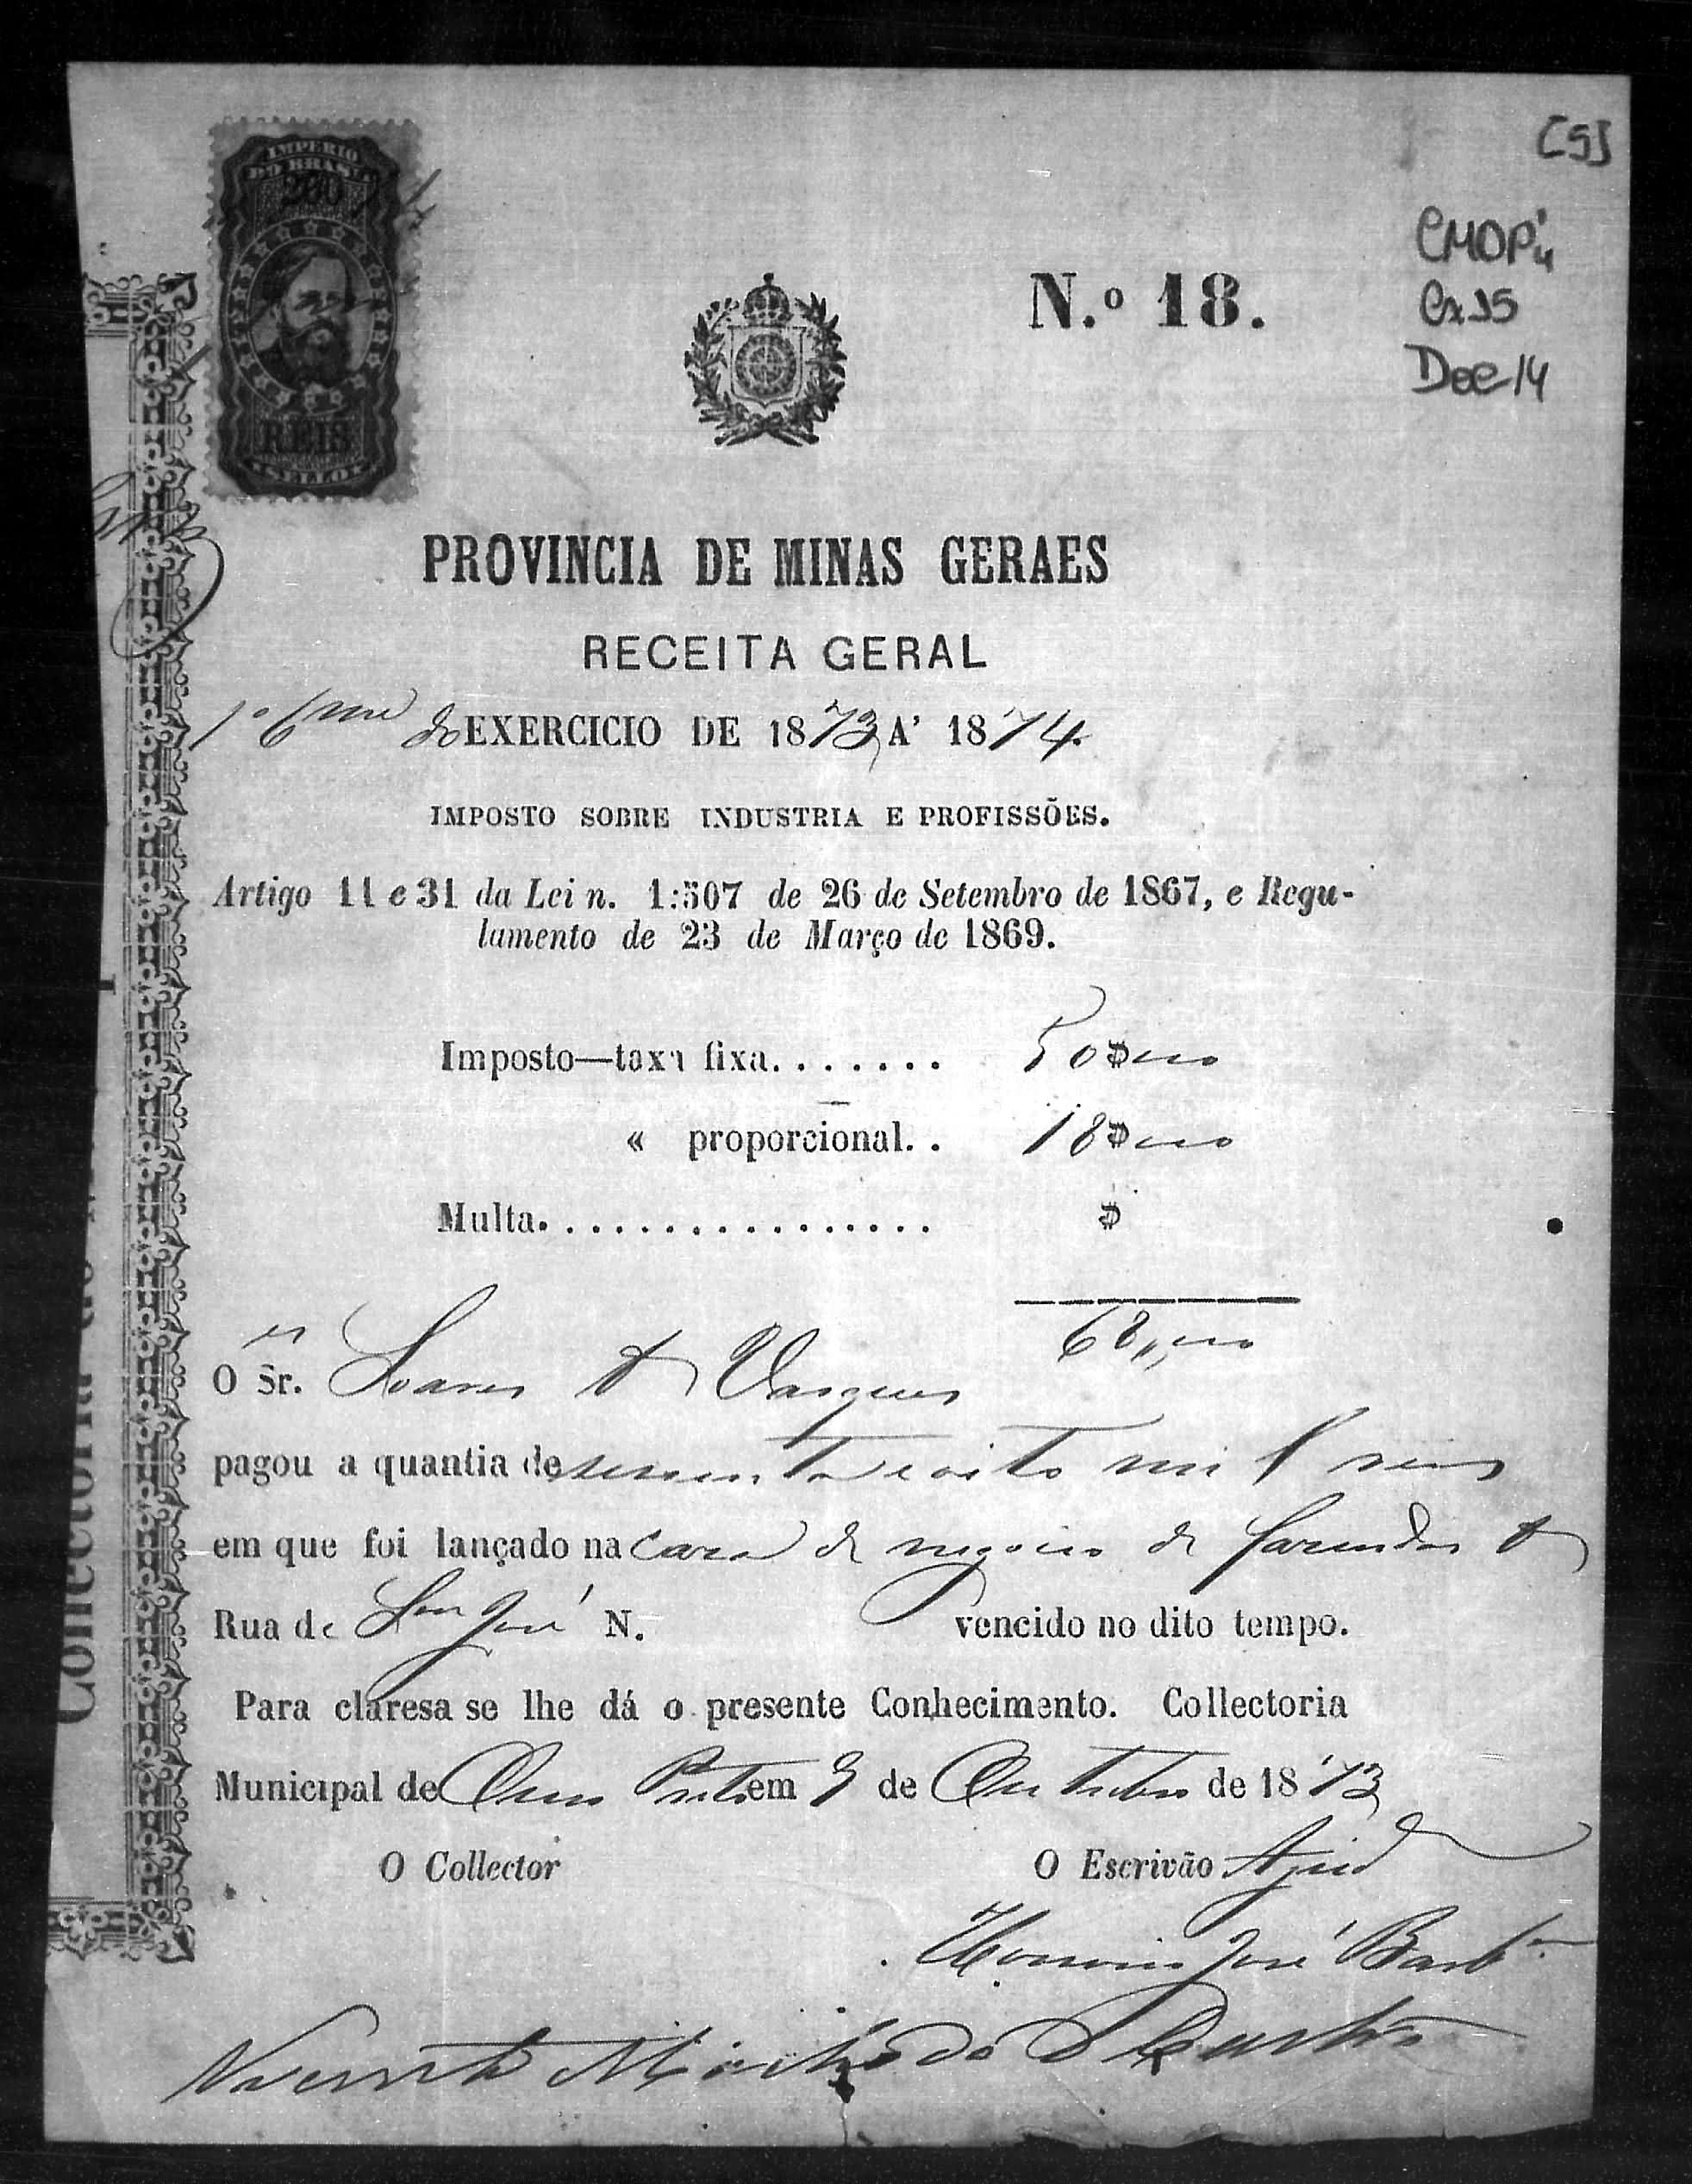 [5]
IMPERIO
DO BRASIL
200
REIS
SELLO
N.º 18.
CMOP
Cx 15
Doc 14
PROVINCIA DE MINAS GERAES
RECEITA GERAL
1º 6me do EXERCICIO DE 1873 A' 1874.
IMPOSTO SOBRE INDUSTRIA E PROFISSÕES.
Artigo 11 e 31 da Lei n. 1:507 de 26 de Setembro de 1867, e Regu-
lamento de 23 de Março de 1869.
Imposto—taxa fixa....... 50$000
« proporcional. . 18$000
Multa................ $
68,,000
O Srs. Soares & Vasques
pagou a quantia de sessenta e oito mil reis
em que foi lançado na casa de negocio de fasendas &
Rua de San José N. vencido no dito tempo.
Para claresa se lhe dá o presente Conhecimento. Collectoria
Municipal de Ouro Preto em 9 de Outubro de 1873
O Collector O Escrivão Ajud
José Barb
Vicente Machado de Castro
Collectoria